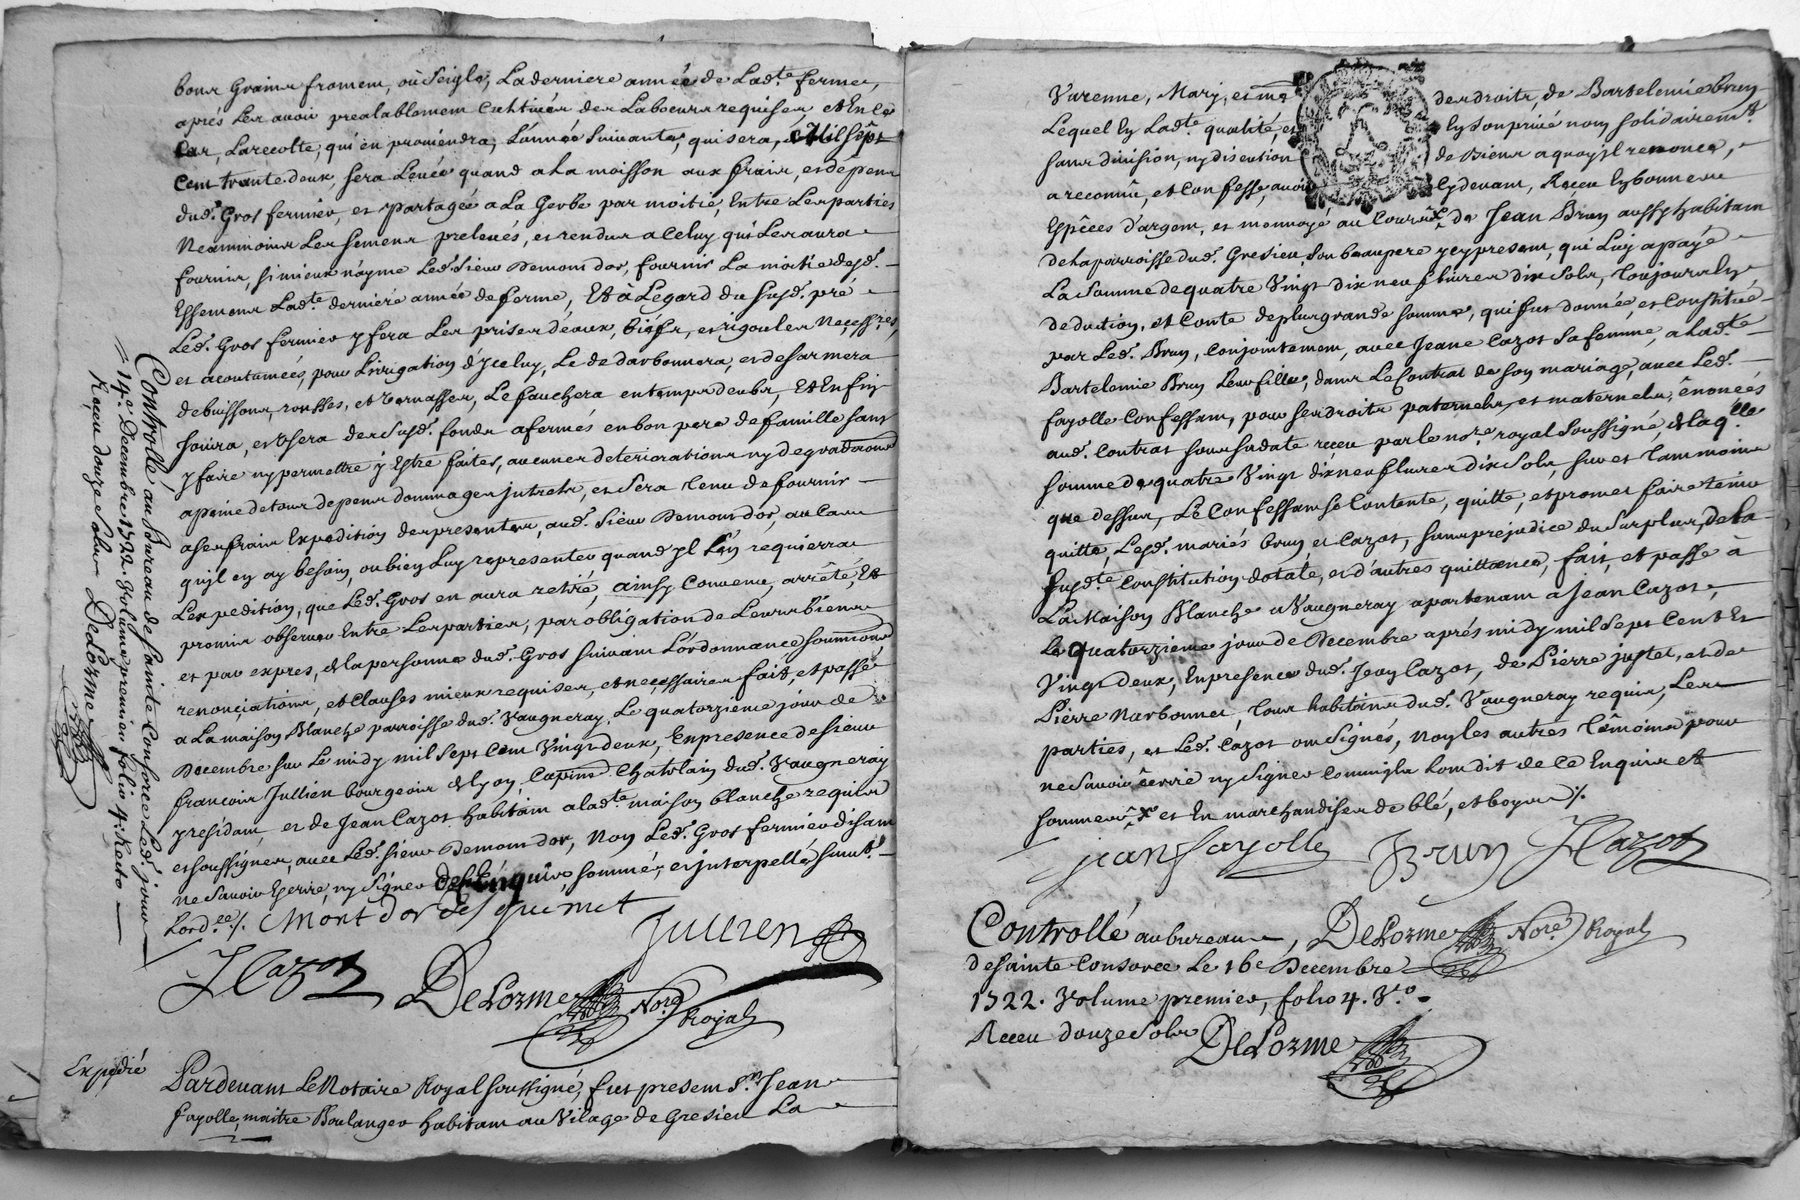 bons Grains froment, où Seigle, La derniere année de Lad.te ferme,
aprés Les avoir prealablement Cultivés des Labeurs requises, et En ce
Cas, La recolte, qui en proviendra, L'année Suivante, qui sera, Mil sept
Cent trante deux, sera Levée quand a La moisson aux frais, et dêpens
dud.t Gros fermier, et partagée a La Gerbe par moitié, Entre Les parties
Neanmoins Les semens prelevés, et rendus a Celuy qui Les aura
fournis, si mieux n'ayme Led.t Sieur Demont dor, fournir La moitié desd.
Essemens Lad.te derniere année de ferme, Et à L'egard du susd.t pré
Led.t Gros fermier y fera Les prises d'eaux, biéfs, et rigoules Necess.res,
et acoutumées, pour L'irrigation d'yceluy, Le dedarbonnera, et desarmera
de buissons, ronsses, et Vernasses, Le fauchera en temps deub, Et Enfin
Jouira, et Usera des Susd.t fonds afermés en bon pere de famille sans
y faire ny permettre y Estre faites, aucunes deteriorations ny degradaons
apeine de tous depens dommages jntrets, et sera tenu de fournir
a ses frais Expedition des presentes, aud.t Sieur Demont dor, au Cas
qu'jl en ay besoin, ou bien Luy representer quand yl L'en requierra
L'expedition, que Led.t Gros en aura retiré, ainsy Convenu, arrêté, Et
promis observer Entre Les parties, par obligation de Leurs biens
et par expres, de la personne dud.t Gros suivant L'ordonnance soumissions
renonçiations, et Clauses mieux requises, et necessaires fait, et passé
a La maison Blanche parroisse dud.t Vaugneray, Le quatorzieme jour de
Decembre sur Le midy mil sept Cent Vingt deux, En presence de sieur
francois Jullien bourgeois de Lyon, Capine Chatelain dud.t Vaugneray
y residant, et de Jean Cazot habitant a lad.te maison blanche requis
et soussignes, avec Led.t sieur Demont dor, Non Led.t Gros fermier disant
ne Savoir Ecrire, ny Signer de ce Enquis, sommé, et jnterpellé suiv.t
L'ord.ce ./. Mont d'or
Jullien
J Cazot DeLorme Nor.e Royal
Controllé au Bureau de Sainte Consorce Led.t jour
14.e Decembre 1722. Volume premier folio 4. Recto
Receu douze sols DeLorme
Expedié
Pardevant Le Notaire Royal soussigné, fut present S.r Jean
fayolle, maitre Boulanger habitant au Vilage de Gresieu La
Varenne, Mary, et m des droits, de Bartelemie brun
Lequel En Lad.te qualité et En son privé nom solidairem.t
sans division, ny discution de Biens a quoy jl renonce,
a reconnu, et Confessé, avoir Cy devant, Receu En bonnes
Espêces d'argent, et monnoyé au Cours de Jean Brun aussy habitant
de la parroisse dud.t Gresieu, son beaupere y cy present, qui Luy a payé
La Somme de quatre Vingt dix neuf livres dix sols, toujours En
deduction, et Conte de plus grande somme, qui fut donnée, et Constituée
par Led.t Brun, Conjointement, avec Jeane Cazot Sa femme, a Lad.te
Bartelemie Brun Leur fille, dans Le Contrat de son mariage, avec Led.t
fayolle Confessant, pour ses droits paternels, et maternels, ênoncés
aud.t Contrat sous sa date receu par le no.re royal soussigné, de laq.lle
somme de quatre Vingt dix neuf livres dix sols, sur et tammoins
que dessus, Le Confessant se Contente, quitte, et promet faire tenir
quitte, Lesd.t mariés brun, et Cazot, sans prejudice du surplus, de la
susd.te Constitution dotale, et d'autres quittances, fait, et passé à
La Maison Blanche a Vaugneray apartenant a Jean Cazot,
Le quatorzieme jour de Decembre aprés midy mil sept Cent Et
Vingt deux, En presence dud.t Jean Cazot, de Pierre justet, et de
Pierre Narbonnet, tous habitans dud.t Vaugneray requis, Les
parties, et Led.t Cazot ont Signés, Non les autres têmoins pour
ne Savoir êcrire ny Signer Comm'jls L'ont dit de Ce Enquis et
sommés et En marchandises de blé, et boeuf ./.
jean fayolle J Brun J Cazot
Controllé au bureau, DeLorme Nor.e Royal
de Sainte Consorce Le 16e Decembre
1722. Volume premier, folio 4. V.o
Receu douze sols DeLorme